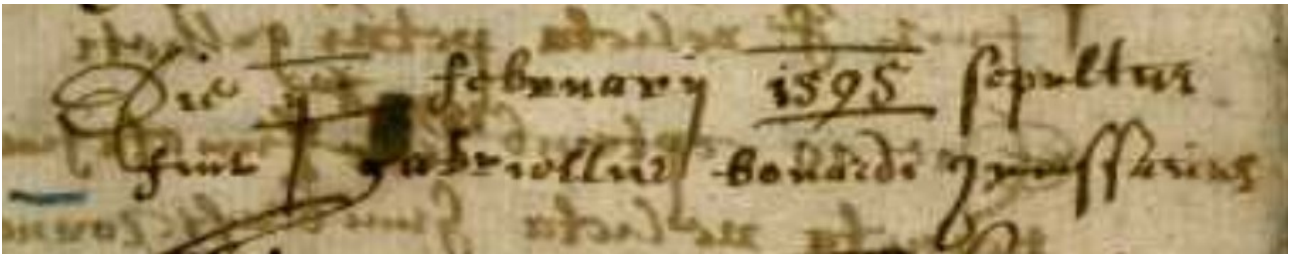 Die februarij 1595 sepultus
fuit gabriellus bonardi